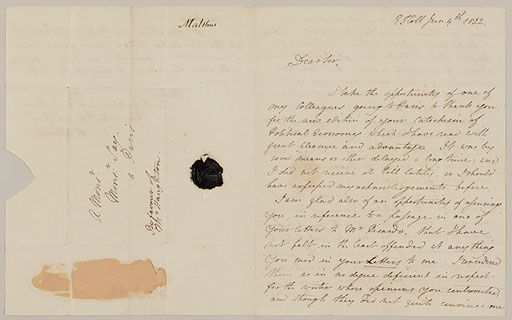 Malthus
E I Coll Jan 4th 1822.
Dear Sir,
I take the opportunity of one of
my Colleagues going to Paris to thank you
for the new edition of your Catechism of
Political Economy which I have read with
great pleasure and advantage. It was by
some means or other delayed a long time; and
I did not receive it till lately, or I should
have expressed my acknowledgements before.
I am glad also of an opportunity of assuring
you, in reference to a passage in one of
your letters to Mr Ricardo, that I have
not felt in the least offended at any thing
you said in your Letters to me. I considered
them as in no degree deficient in respect
for the writer whose opinions you controverted,
and though they did not quite convince me
A Monsr
Monsr Say
a Paris
By favour of